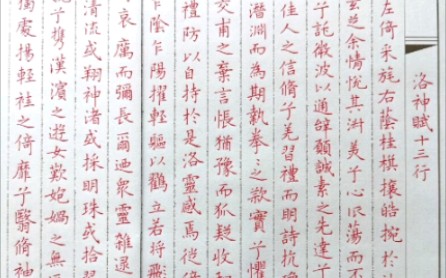 洛神賦十三行
左倚采旄右蔭桂旗攘皓捥於
玄芝余情悅其淑美兮心振蕩而不
兮託微波以通辭願誠素之先達兮
佳人之信脩兮羌習禮而明詩抗
潛淵而為期執拳〻之款實兮懼
交甫之棄言悵猶豫而狐疑收和
禮防以自持於是洛靈感焉徙倚
乍陰乍陽擢輕軀以鶴立若將飛
哀厲而彌長爾迺眾靈雜遝
清流或翔神渚或採明珠或拾翠
妃兮攜漢濱之遊女歎炮媧之無
獨處揚輕袿之倚靡兮翳脩袖